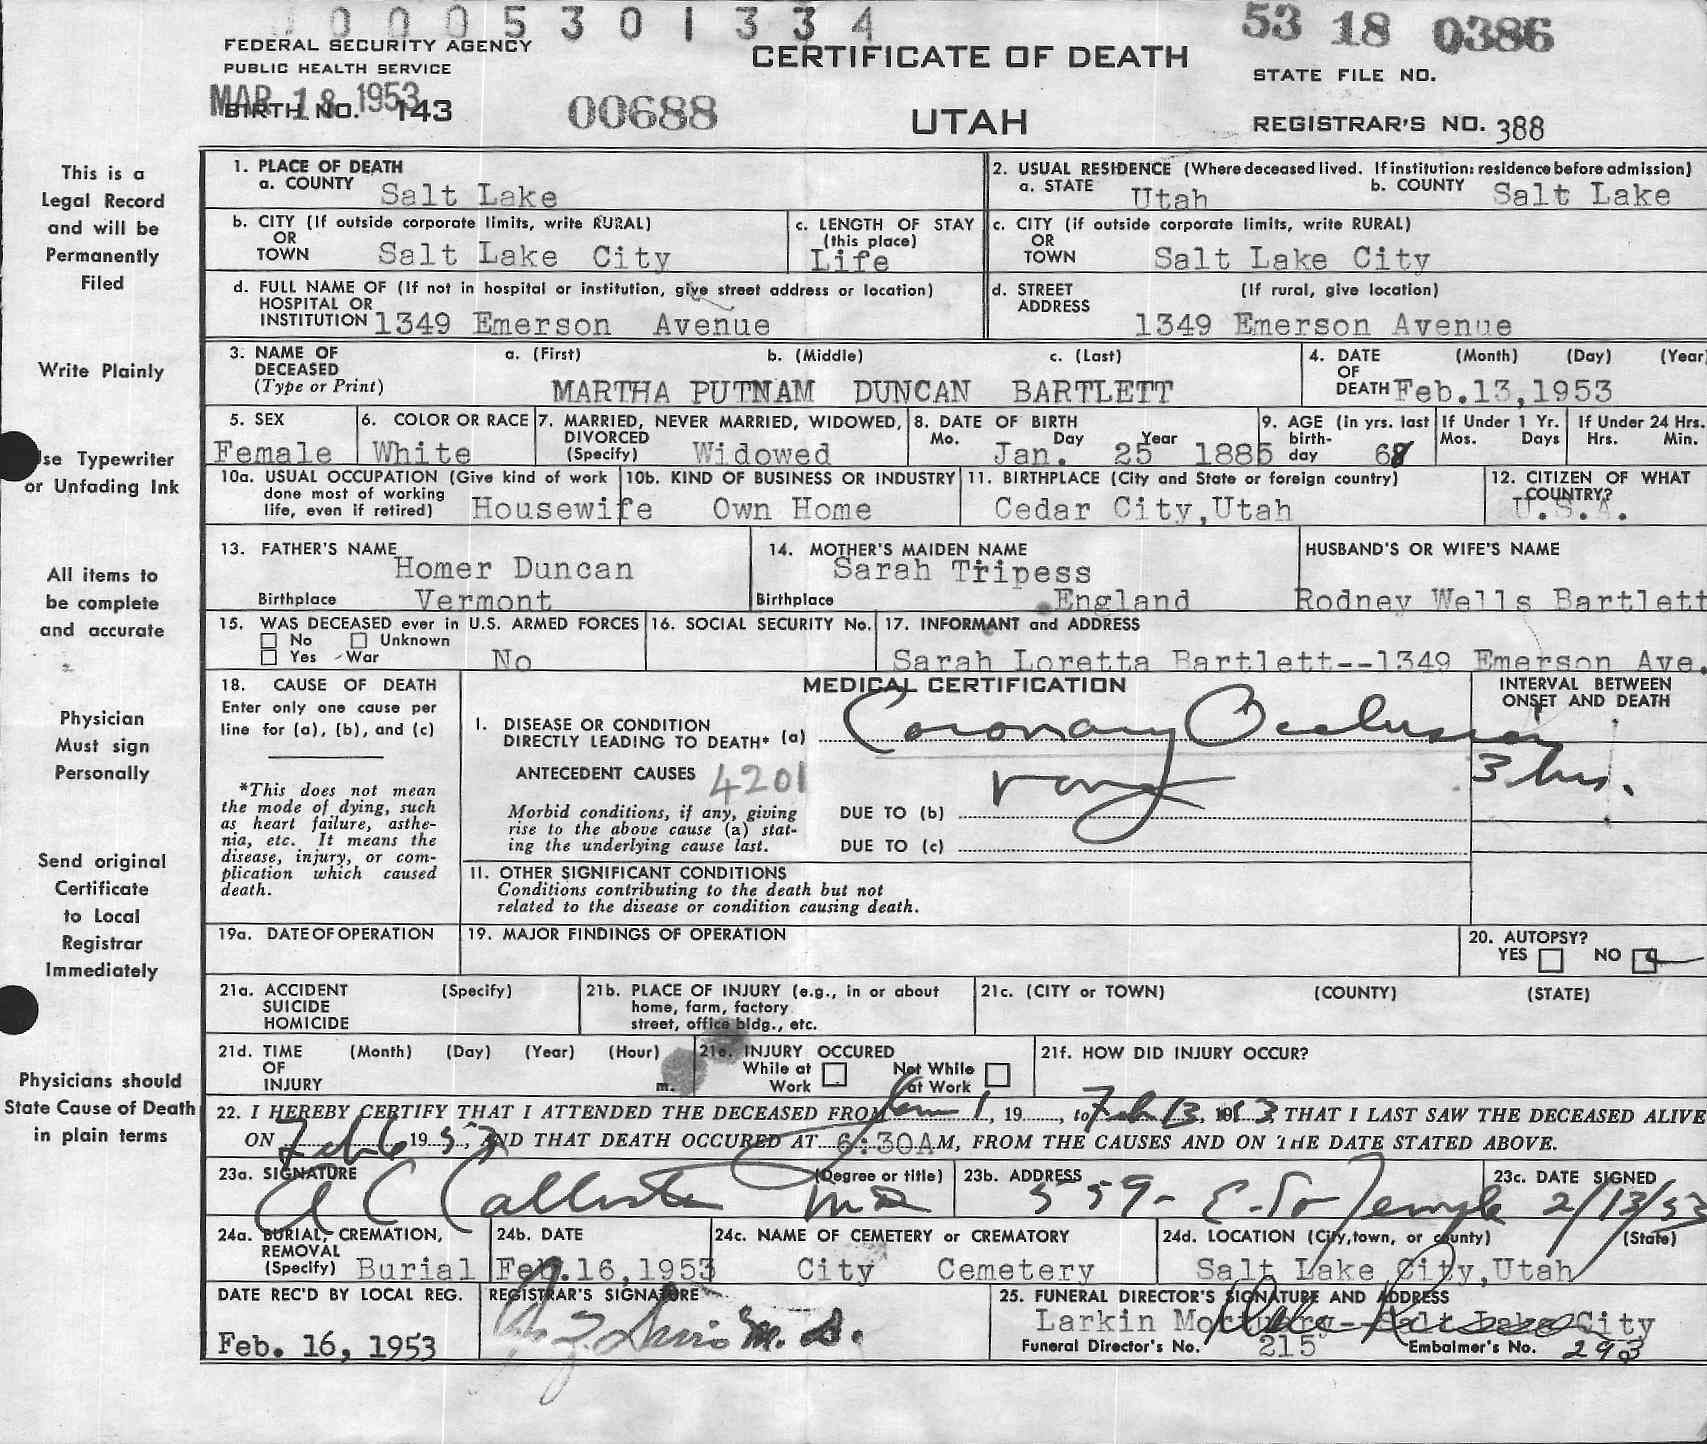 0005301334
53 18 0386
FEDERAL SECURITY AGENCY
PUBLIC HEALTH SERVICE
CERTIFICATE OF DEATH
STATE FILE NO.
MAR 18 1953
BIRTH NO. 143
00688
UTAH
REGISTRAR'S NO. 388
This is a
Legal Record
and will be
Permanently
Filed
Write Plainly
se Typewriter
or Unfading Ink
All items to
be complete
and accurate
Physician
Must sign
Personally
Send original
Certificate
to Local
Registrar
Immediately
Physicians should
State Cause of Death
in plain terms
1. PLACE OF DEATH
a. COUNTY Salt Lake
2. USUAL RESIDENCE (Where deceased lived. If institution: residence before admission)
a. STATE Utah b. COUNTY Salt Lake
b. CITY (If outside corporate limits, write RURAL)
OR
TOWN Salt Lake City
c. LENGTH OF STAY
(this place)
Life
c. CITY (if outside corporate limits, write RURAL)
OR
TOWN Salt Lake City
d. FULL NAME OF (If not in hospital or institution, give street address or location)
HOSPITAL OR
INSTITUTION 1349 Emerson Avenue
d. STREET (If rural, give location)
ADDRESS
1349 Emerson Avenue
3. NAME OF a. (First) b. (Middle) c. (Last)
DECEASED
(Type or Print) MARTHA PUTNAM DUNCAN BARTLETT
4. DATE (Month) (Day) (Year
OF
DEATH Feb.13,1953
5. SEX
Female
6. COLOR OR RACE
White
7. MARRIED, NEVER MARRIED, WIDOWED,
DIVORCED
(Specify) Widowed
8. DATE OF BIRTH
Mo. Day Year
Jan. 25 1885
9. AGE (in yrs. last
birth-
day 68
If Under 1 Yr.
Mos. Days
If Under 24 Hrs.
Hrs. Min.
10a. USUAL OCCUPATION (Give kind of work
done most of working
life, even if retired) Housewife
10b. KIND OF BUSINESS OR INDUSTRY
Own Home
11. BIRTHPLACE (City and State or foreign country)
Cedar City,Utah
12. CITIZEN OF WHAT
COUNTRY?
U.S.A.
13. FATHER'S NAME
Homer Duncan
Birthplace Vermont
14. MOTHER'S MAIDEN NAME
Sarah Tripess
Birthplace England
HUSBAND'S OR WIFE'S NAME
Rodney Wells Bartlett
15. WAS DECEASED ever in U.S. ARMED FORCES
No Unknown
Yes War No
16. SOCIAL SECURITY No.
17. INFORMANT and ADDRESS
Sarah Loretta Bartlett--1349 Emerson Ave.
18. CAUSE OF DEATH
Enter only one cause per
line for (a), (b), and (c)
*This does not mean
the mode of dying, such
as heart failure, asthe-
nia, etc. It means the
disease, injury, or com-
plication which caused
death.
MEDICAL CERTIFICATION
INTERVAL BETWEEN
ONSET AND DEATH
I. DISEASE OR CONDITION
DIRECTLY LEADING TO DEATH* (a) Coronary Occlusion
3 hrs.
ANTECEDENT CAUSES 4201
Morbid conditions, if any, giving
rise to the above cause (a) stat-
ing the underlying cause last.
DUE TO (b)
DUE TO (c)
II. OTHER SIGNIFICANT CONDITIONS
Conditions contributing to the death but not
related to the disease or condition causing death.
19a. DATE OF OPERATION
19. MAJOR FINDINGS OF OPERATION
20. AUTOPSY?
YES NO
21a. ACCIDENT (Specify)
SUICIDE
HOMICIDE
21b. PLACE OF INJURY (e.g., in or about
home, farm, factory
street, office bldg., etc.
21c. (CITY or TOWN) (COUNTY) (STATE)
21d. TIME (Month) (Day) (Year) (Hour)
OF
INJURY m.
21e. INJURY OCCURED
While at Not While
Work at Work
21f. HOW DID INJURY OCCUR?
22. I HEREBY CERTIFY THAT I ATTENDED THE DECEASED FROM Jan 1, 19......, to Feb 13, 1953, THAT I LAST SAW THE DECEASED ALIVE
ON Feb 6 1953, AND THAT DEATH OCCURED AT 6:30AM, FROM THE CAUSES AND ON THE DATE STATED ABOVE.
23a. SIGNATURE (Degree or title)
A C Callister MD
23b. ADDRESS
559 - E. So Temple
23c. DATE SIGNED
2/13/53
24a. BURIAL, CREMATION,
REMOVAL
(Specify) Burial
24b. DATE
Feb.16,1953
24c. NAME OF CEMETERY OR CREMATORY
City Cemetery
24d. LOCATION (City,town, or county) (State)
Salt Lake City,Utah
DATE REC'D BY LOCAL REG.
Feb. 16, 1953
REGISTRAR'S SIGNATURE
M. D.
25. FUNERAL DIRECTOR'S SIGNATURE AND ADDRESS
Larkin Mortuary--Salt Lake City
Funeral Director's No. 215 Embalmer's No. 293